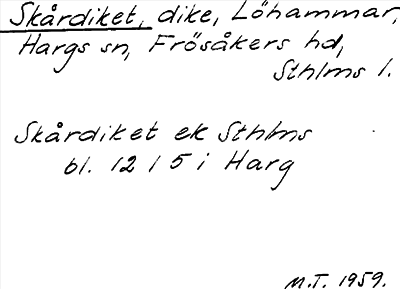 Skårdiket, dike, Löhammar,
Hargs sn, Frösåkers hd,
Sthlms l.
Skårdiket ek Sthlms
bl. 12 I 5 i Harg
M.T. 1959.